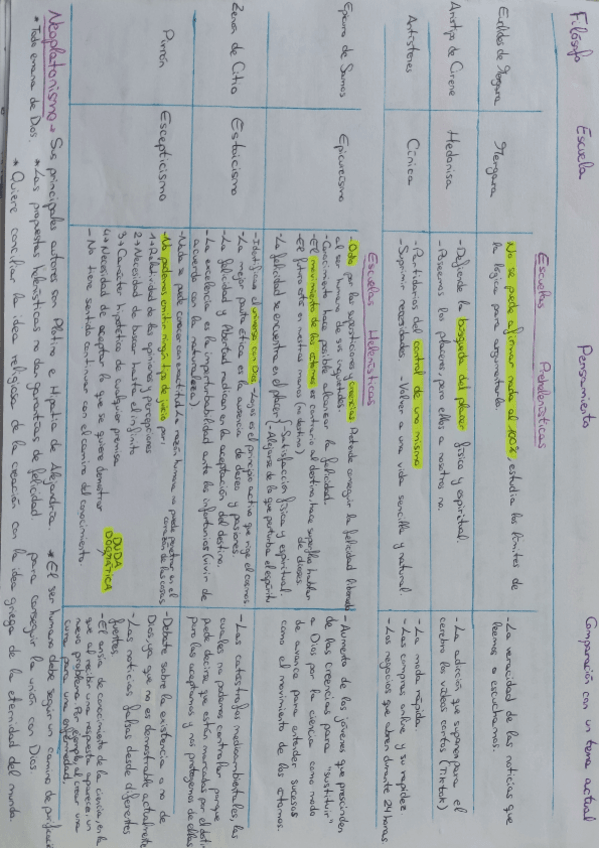 Filósofo Escuela Pensamiento Comparación con un tema actual
Escuelas Prehelenísticas
Eclides de Megara
Megara
No se puede afirmar nada al 100%, estudia los límites de
la lógica para argumentarla.
- La veracidad de las noticias que
leemos o escuchamos.
Aristipo de Cirene
Hedonista
- Defiende la búsqueda del placer físico y espiritual.
- Poseemos los placeres, pero ellos a nosotros no.
- La adicción que supone para el
cerebro los vídeos cortos (TikTok)
Antístenes
Cínica
- Partidarios del control de uno mismo
- Suprimir necesidades. - Volver a una vida sencilla y natural.
- La moda rápida.
- Las compras online y su rapidez
- Los negocios que abren durante 24 horas
Escuelas Helenísticas
Epicuro de Samos
Epicureísmo
- Opta por las supersticiones y creencias. Pretende conseguir la felicidad librando
al ser humano de sus inquietudes.
- Conocimiento hace posible alcanzar la felicidad.
- El movimiento de los átomos es contrario al destino, hace superfluo hablar
de dioses.
- El futuro está en nuestras manos (no destino)
- La felicidad se encuentra en el placer { - Satisfacción física y espiritual.
- Alejarse de lo que perturba el espíritu
- Aumento de los jóvenes que prescinden
de las creencias para "sustituir"
a Dios por la ciencia como modo
de avance para entender sucesos
como el movimiento de los átomos.
Zenón de Citio
Estoicismo
- Identifica el universo con Dios. Logos es el principio activo que rige el cosmos
- La mejor pauta ética es la ausencia de deseo y pasiones.
- La felicidad y libertad radican en la aceptación del destino.
- La excelencia es la imperturbabilidad ante los infortunios (vivir de
acuerdo con la naturaleza)
- Las catástrofes medioambientales, las
cuales no podemos controlar porque
puede decirse que están marcadas por el destino
pero las aceptamos y nos protegemos de ellas
Pirrón
Escepticismo
- Nada se puede conocer con exactitud. La razón humana no puede penetrar en el
corazón de las cosas
- No podemos emitir ningún tipo de juicio por:
1→ Relatividad de las opiniones y percepciones
2→ Necesidad de buscar hasta el infinito
3→ Carácter hipotético de cualquier premisa
4→ Necesidad de aceptar lo que se quiere demostrar
- No tiene sentido continuar con el camino del conocimiento.
DUDA
DOGMÁTICA
- Debate sobre la existencia o no de
Dios, ya que no es demostrable actualmente
- Las noticias falsas desde diferentes
fuentes
- El ansia de conocimiento de la ciencia, en la
que al recibir una respuesta aparece un
nuevo problema. Por ejemplo, al crear una
cura para una enfermedad.
Neoplatonismo → Sus principales autores son Plotino e Hipatia de Alejandría. * El ser humano debe seguir un camino de
* Todo emana de Dios. * Las propuestas helenísticas no dan garantías de felicidad para conseguir la unión con Dios
* Quiere conciliar la idea religiosa de la creación con la idea griega de la eternidad del mundo.